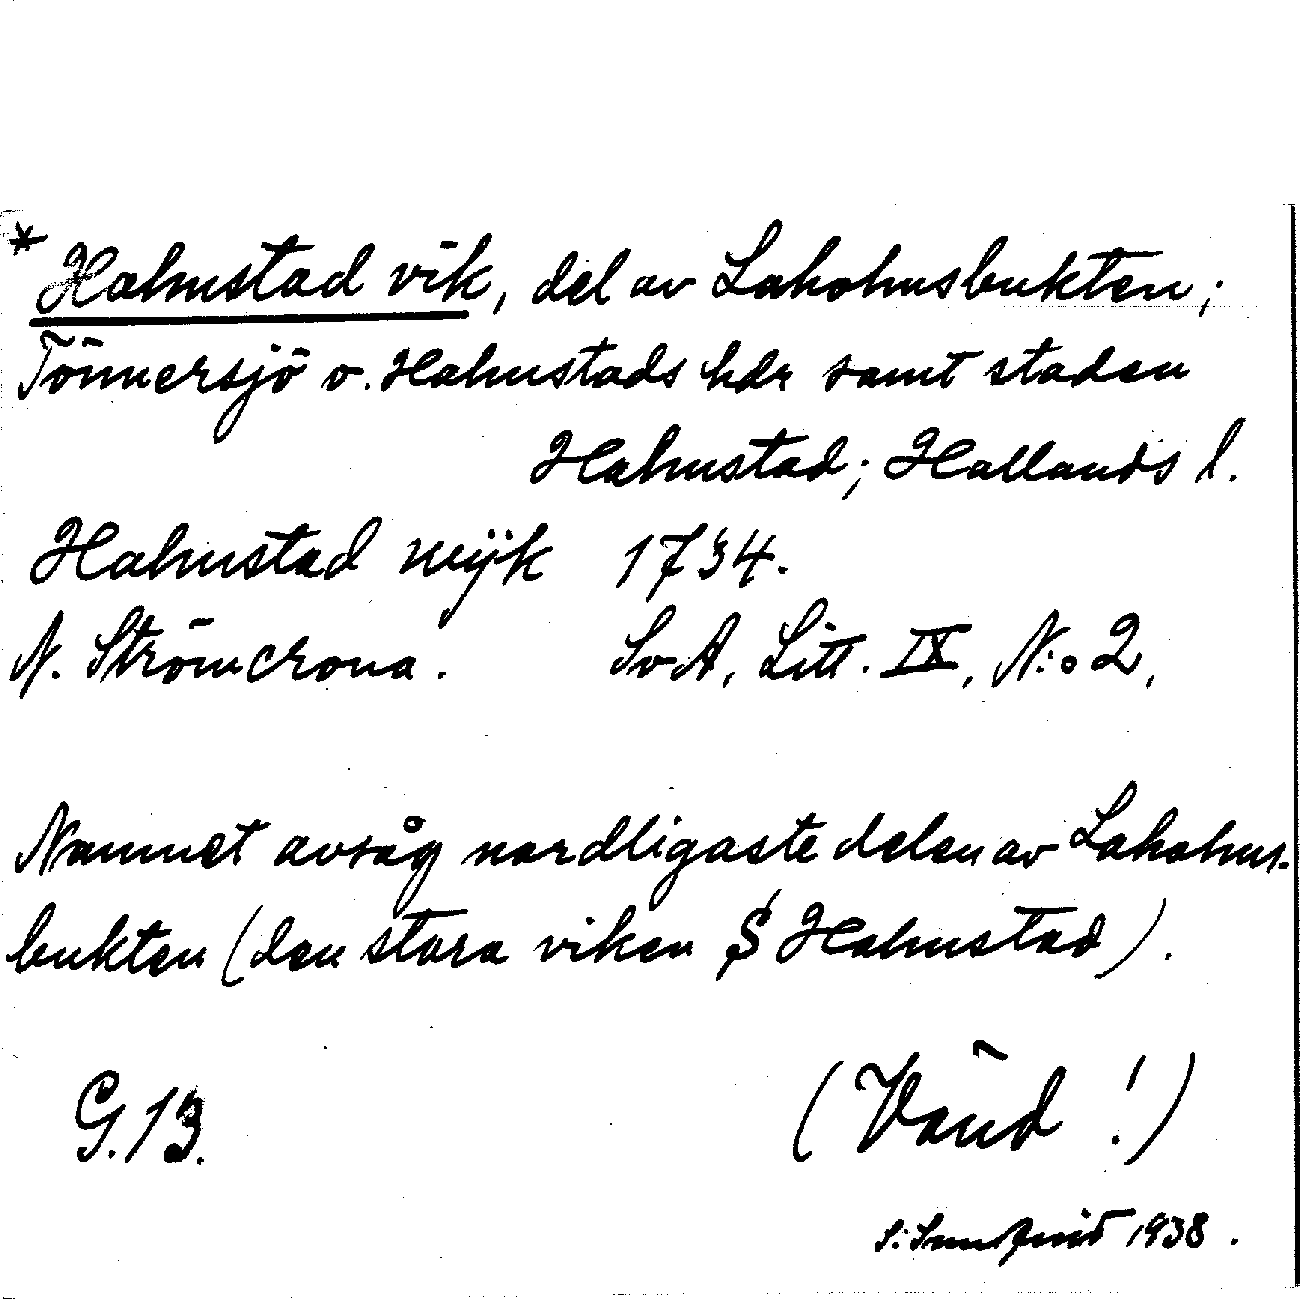 * Halmstad vik, del av Laholmsbukten;
Tönnersjö o. Halmstads hdr samt staden
Halmstad; Hallands l.
Halmstad wijk 1734.
N. Strömcrona. SvA, Litt. IX, N:o 2,
Namnet avsåg nordligaste delen av Laholms-
bukten (den stora viken S Halmstad).
G.13.
(Vänd!)
1938.